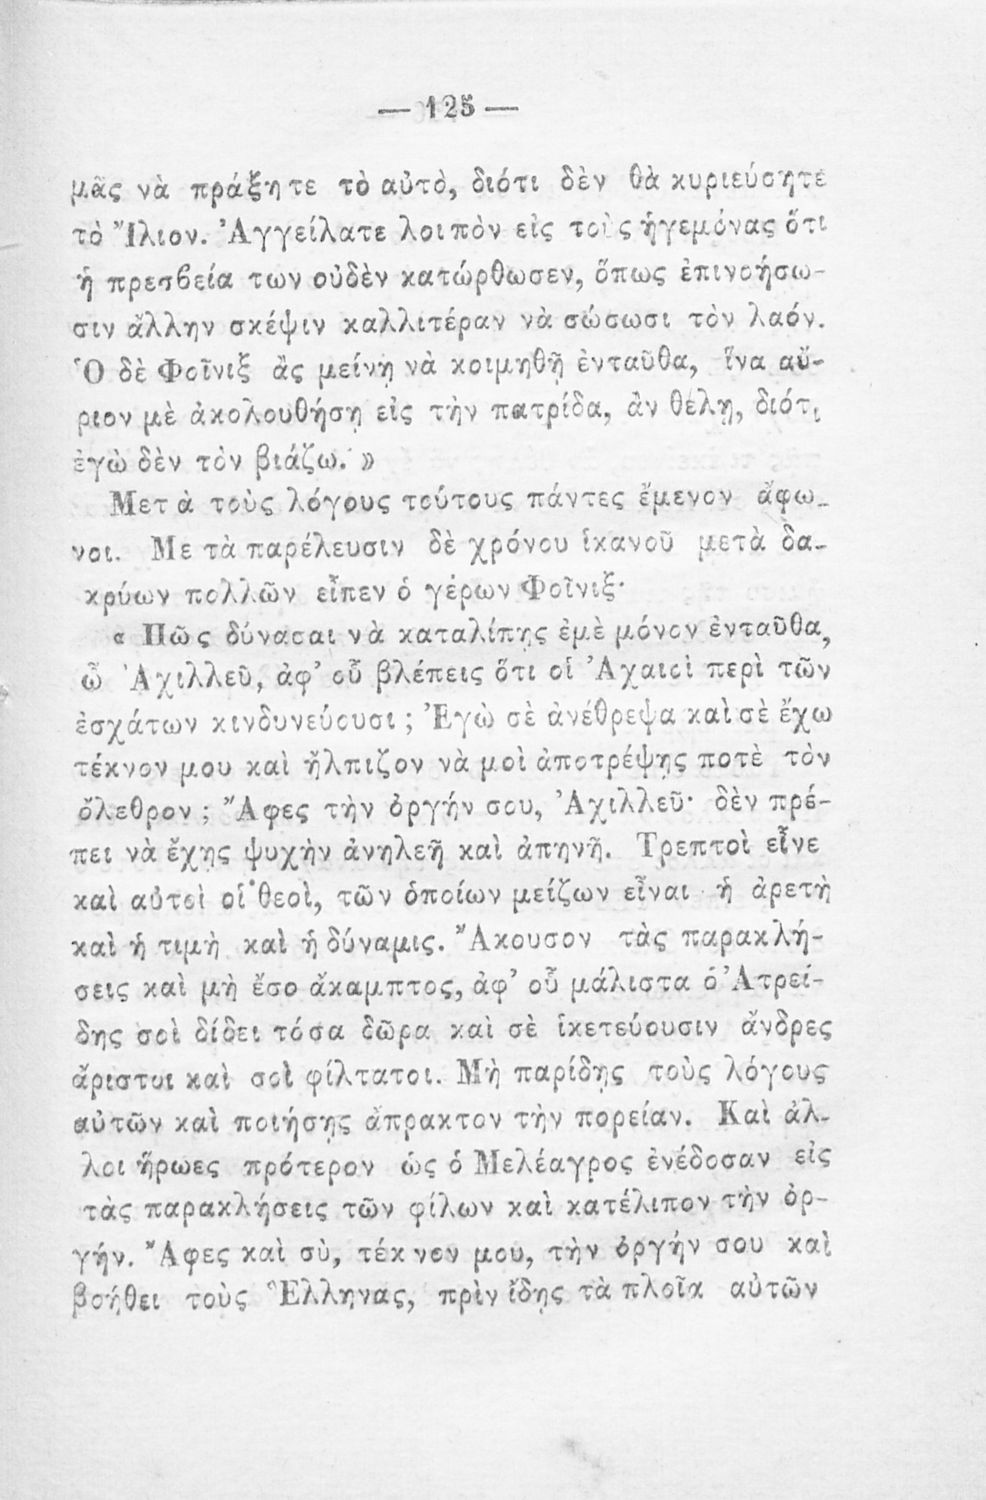 — 125 —
μᾶς νὰ πράξητε τὸ αὐτὸ, διότι δὲν θὰ κυριεύσητε
τὸ Ἴλιον. Ἀγγείλατε λοιπὸν εἰς τοὺς ἡγεμόνας ὅτι
ἡ πρεσβεία των οὐδὲν κατώρθωσεν, ὅπως ἐπινοήσω-
σιν ἄλλην σκέψιν καλλιτέραν νὰ σώσωσι τὸν λαόν.
Ὁ δὲ Φοῖνιξ ἂς μείνῃ νὰ κοιμηθῇ ἐνταῦθα, ἵνα αὔ-
ριον μὲ ἀκολουθήσῃ εἰς τὴν πατρίδα, ἂν θέλῃ, διότι
ἐγὼ δὲν τὸν βιάζω. »
Μετὰ τοὺς λόγους τούτους πάντες ἔμενον ἄφω-
νοι. Με τὰ παρέλευσιν δὲ χρόνου ἱκανοῦ μετὰ δα-
κρύων πολλῶν εἶπεν ὁ γέρων Φοῖνιξ·
« Πῶς δύνασαι νὰ καταλίπῃς ἐμὲ μόνον ἐνταῦθα,
ὦ Ἀχιλλεῦ, ἀφ’ οὗ βλέπεις ὅτι οἱ Ἀχαιοὶ περὶ τῶν
ἐσχάτων κινδυνεύουσι ; Ἐγὼ σὲ ἀνέθρεψα καὶ σὲ ἔχω
τέκνον μου καὶ ἤλπιζον νὰ μοὶ ἀποτρέψῃς ποτὲ τὸν
ὄλεθρον ; Ἄφες τὴν ὀργήν σου, Ἀχιλλεῦ· δὲν πρέ-
πει νὰ ἔχῃς ψυχὴν ἀνηλεῆ καὶ ἀπηνῆ. Τρεπτοὶ εἶνε
καὶ αὐτοὶ οἱ θεοὶ, τῶν ὁποίων μείζων εἶναι ἡ ἀρετὴ
καὶ ἡ τιμὴ καὶ ἡ δύναμις. Ἄκουσον τὰς παρακλή-
σεις καὶ μὴ ἔσο ἄκαμπτος, ἀφ’ οὗ μάλιστα ὁ Ἀτρεί-
δης σοὶ δίδει τόσα δῶρα καὶ σὲ ἱκετεύουσιν ἄνδρες
ἄριστοι καὶ σοὶ φίλτατοι. Μὴ παρίδῃς τοὺς λόγους
αὐτῶν καὶ ποιήσῃς ἄπρακτον τὴν πορείαν. Καὶ ἄλ-
λοι ἥρωες πρότερον ὡς ὁ Μελέαγρος ἐνέδοσαν εἰς
τὰς παρακλήσεις τῶν φίλων καὶ κατέλιπον τὴν ὀρ-
γήν. Ἄφες καὶ σὺ, τέκνον μου, τὴν ὀργήν σου καὶ
βοήθει τοὺς Ἕλληνας, πρὶν ἴδῃς τὰ πλοῖα αὐτῶν